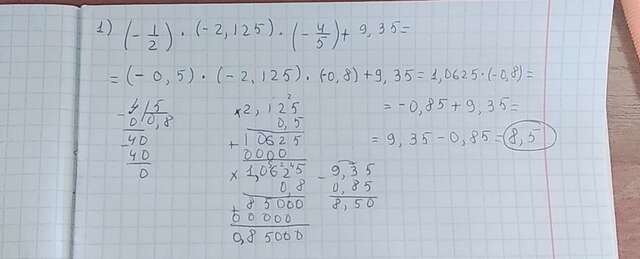 1) (- 1/2) · (-2,125) · (- 4/5) + 9,35 =
= (-0,5) · (-2,125) · (-0,8) + 9,35 = 1,0625 · (-0,8) =
= -0,85 + 9,35 =
= 9,35 - 0,85 = 8,5
- 4 | 5
0 0,8
- 40
40
0
× 2,125
0,5
+ 10625
0000
× 1,0625
0,8
+ 85000
00000
0,85000
- 9,35
0,85
8,50